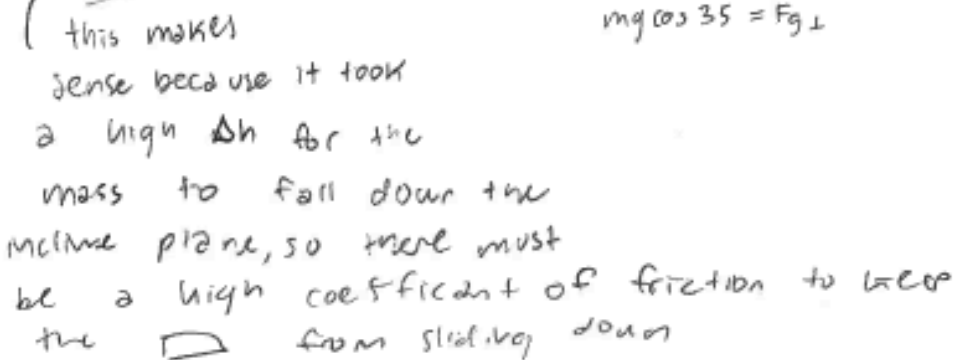 this makes
mg cos 35 = Fg⊥
sense because it took
a high Δh for the
mass to fall down the
incline plane, so there must
be a high coefficant of friction to keep
the from sliding down